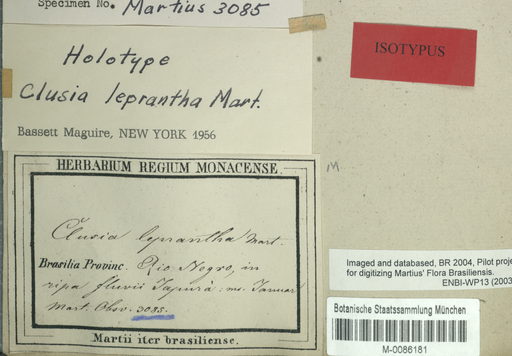 Specimen No. Martius 3085
Holotype
Clusia leprantha Mart.
Bassett Maguire, NEW YORK 1956
HERBARIUM REGIUM MONACENSE.
Clusia leprantha Mart.
Brasilia Provinc. Rio Negro, in
ripa fluvii Japurá: m. Januar
Mart. Obsv. 3085.
Martii iter brasiliense.
ISOTYPUS
M
Imaged and databased, BR 2004, Pilot proje
for digitizing Martius' Flora Brasiliensis.
ENBI-WP13 (2003
Botanische Staatssammlung München
M-0086181